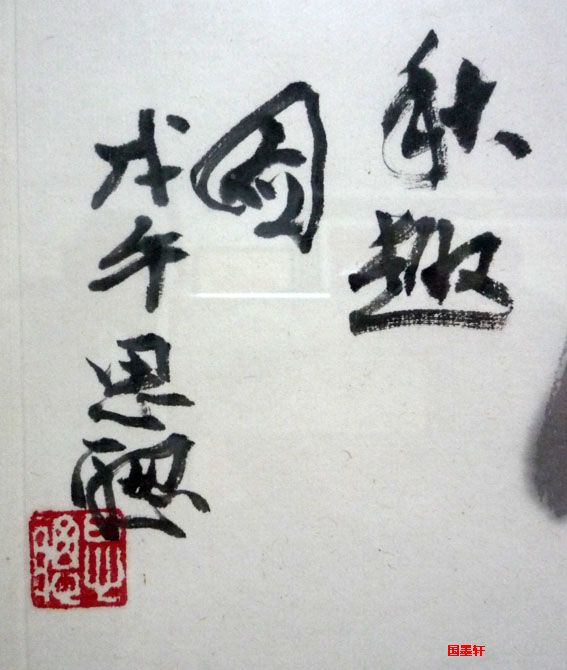 秋趣
图
戊午 思聪
国墨轩